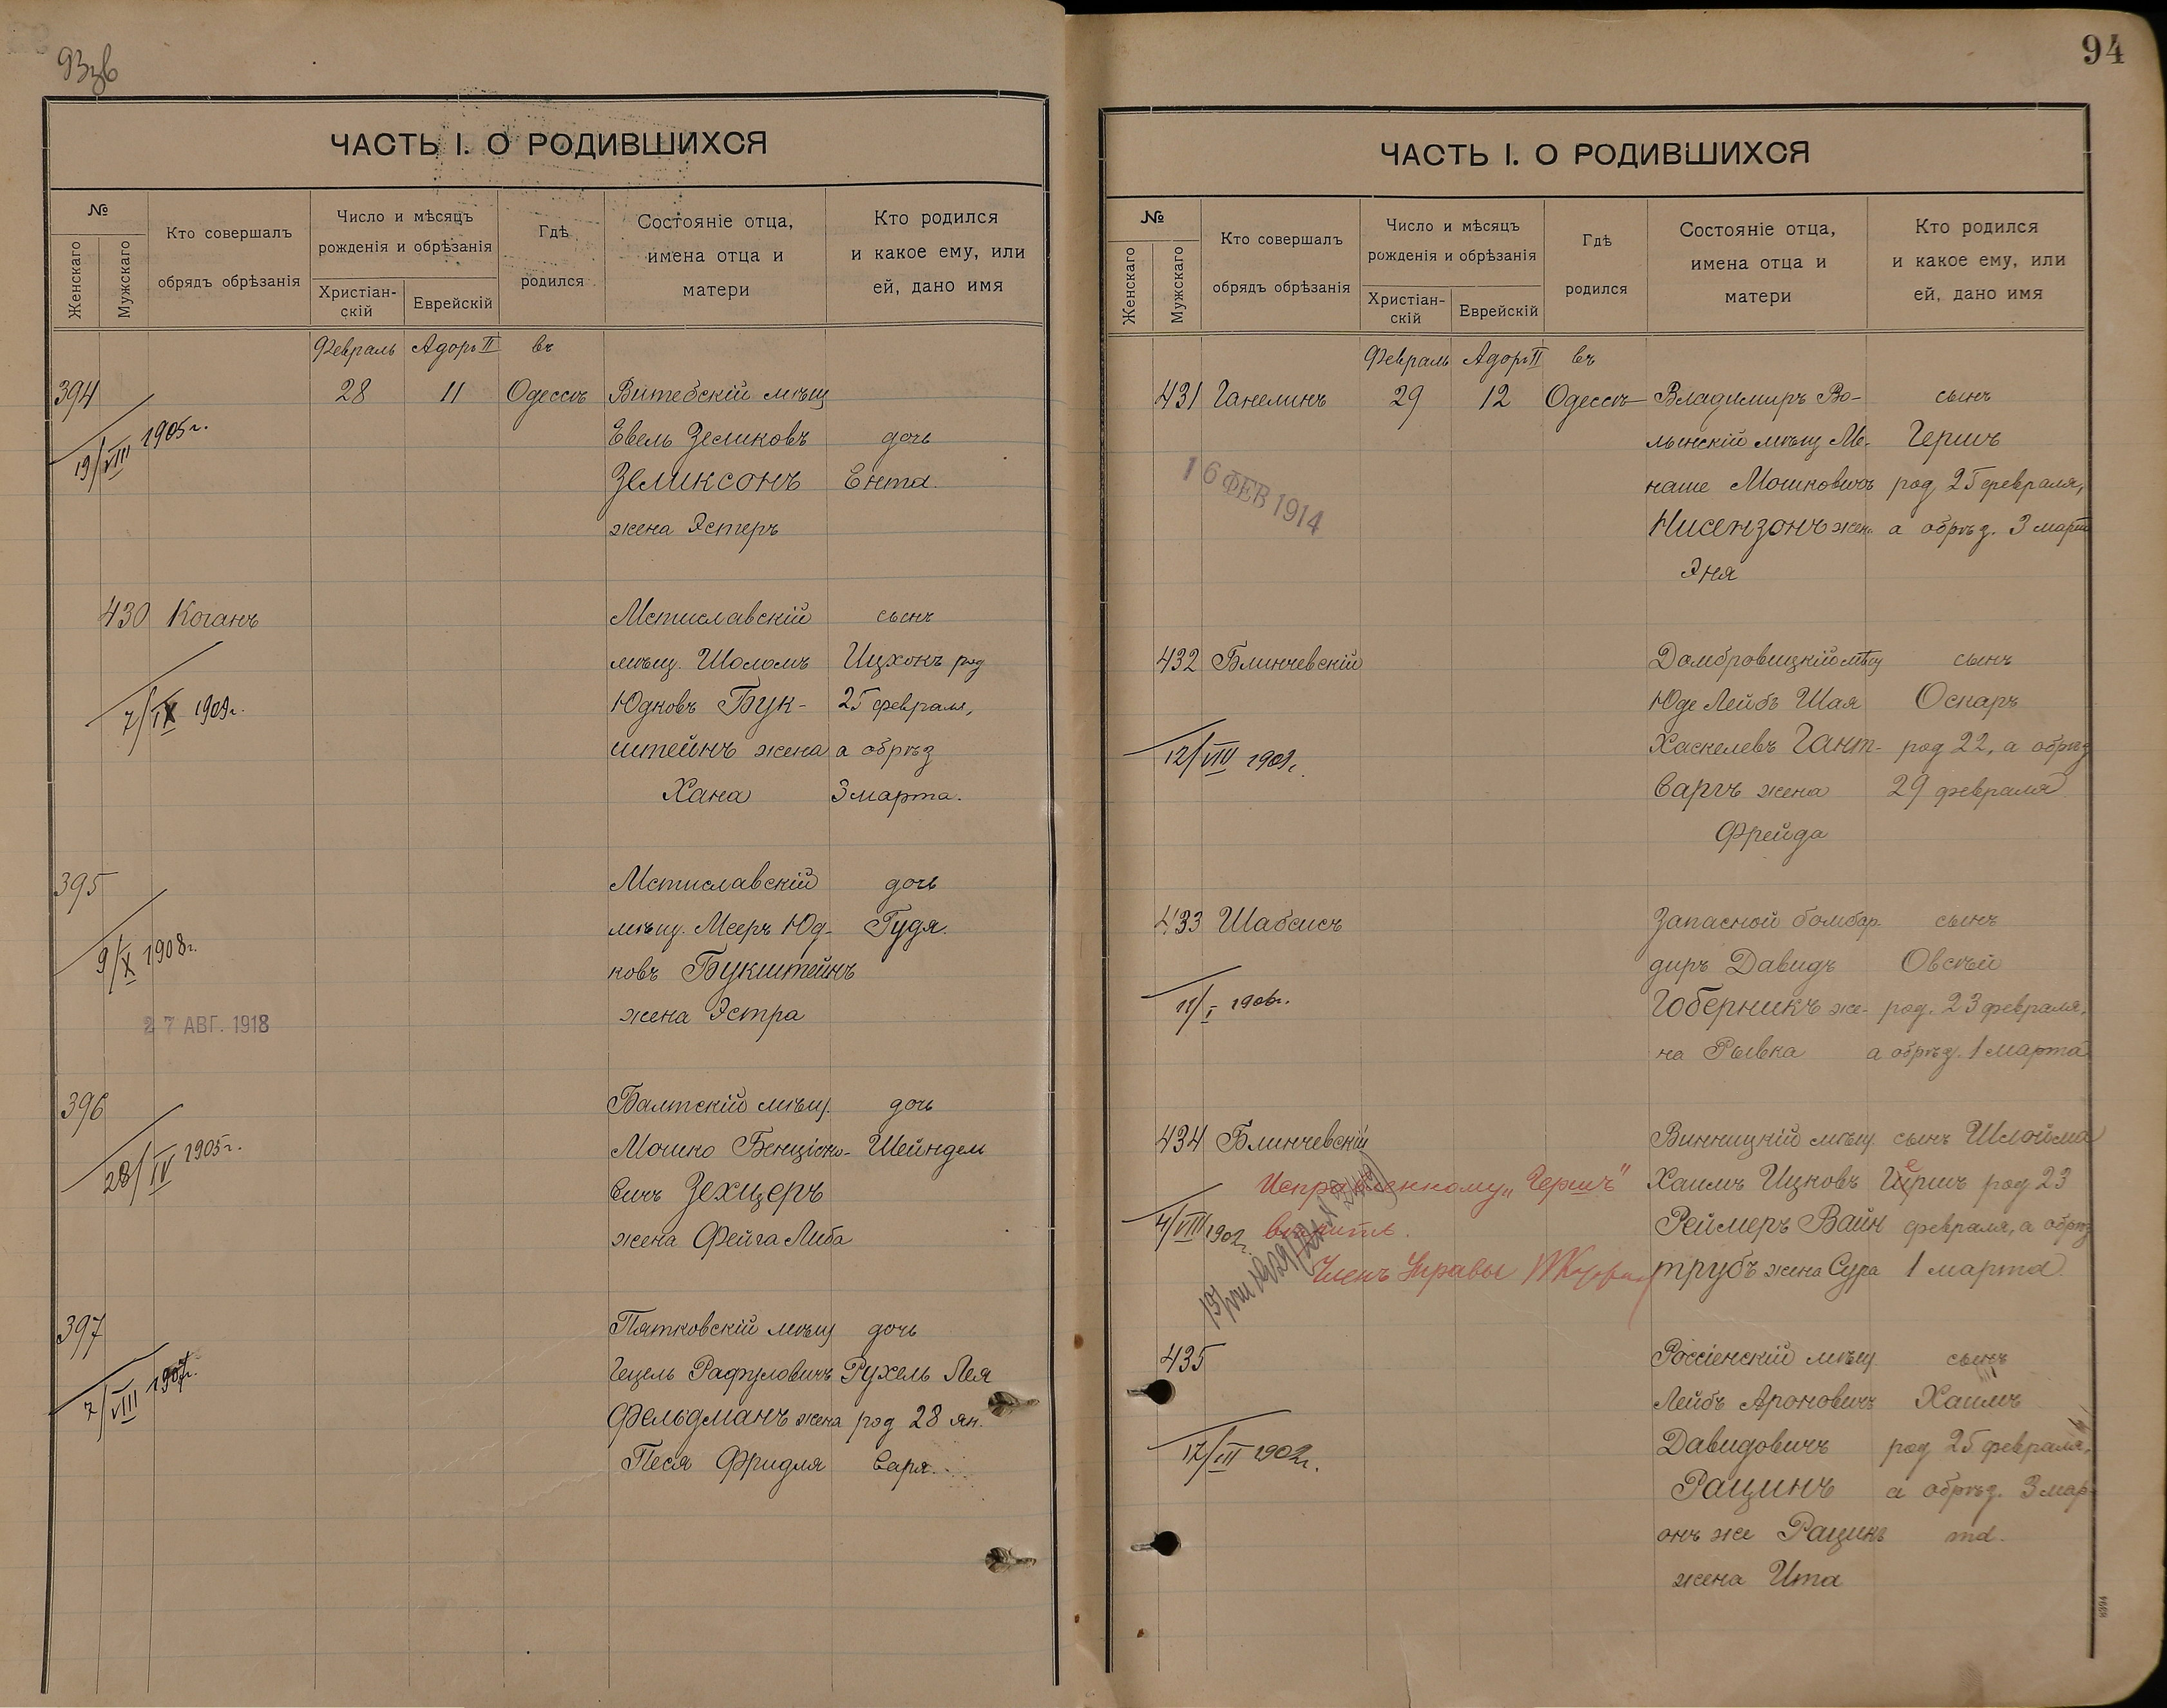 93зв
ЧАСТЬ I. О РОДИВШИХСЯ
№
Женскаго
Мужскаго
Кто совершалъ
обрядъ обрѣзанія
Число и мѣсяцъ
рожденія и обрѣзанія
Христіан-
скій
Еврейскій
Гдѣ
родился
Состояніе отца,
имена отца и
матери
Кто родился
и какое ему, или
ей, дано имя
Февраль Адоръ II въ
394 28 11 Одессѣ Витебскій мѣщ
19/VIII 1905 г. Евель Зеликовъ дочь
Зеликсонъ Ента.
жена Эстеръ
430 Коганъ Мстиславскій сынъ
мѣщ. Шоломъ Ицхокъ род
7/IX 1909г. Юдковъ Бук- 25 февраля,
штейнъ жена а обрѣз
Хана 3 марта.
395 Мстиславскій дочь
9/X 1908г. мѣщ. Мееръ Юд- Гудя.
ковъ Букштейнъ
27 АВГ. 1918 жена Эстра
396 Балтскій мѣщ. дочь
28/IV 1905г. Мошко Бенціоно- Шейндел
вичъ Зехцеръ
жена Фейга Либа
397 Пятковскій мѣщ дочь
7/VIII Гецель Рафуловичъ Рухель Лея
Фельдманъ жена род 28 ян.
Песя Фридля
94
ЧАСТЬ I. О РОДИВШИХСЯ
№
Женскаго
Мужскаго
Кто совершалъ
обрядъ обрѣзанія
Число и мѣсяцъ
рожденія и обрѣзанія
Христіан-
скій
Еврейскій
Гдѣ
родился
Состояніе отца,
имена отца и
матери
Кто родился
и какое ему, или
ей, дано имя
Февраль Адоръ II въ
431 Ганелинъ 29 12 Одессѣ Владимиръ Во- сынъ
лынскій мѣщ Ме- Гершъ
16 ФЕВ 1914 наше Мошковичъ род 25 февраля,
Нисензонъ жен. а обрѣз. 3 марта
Эня
432 Блинчевскій Домбровицкій мѣщ сынъ
Юде Лейбъ Шая Оскаръ
12/VIII Хаскелевъ Гант- род 22, а обрѣз
варгъ жена 29 февраля
Фрейда
433 Шабсисъ Запасной бомбар- сынъ
диръ Давидъ Овсѣй
11/I 1906г. Гоберникъ же- род. 23 февраля,
на Рывка а обрѣз. 1 марта
434 Блинчевскій Винницкій мѣщ сынъ Шлойма
Исправленному „Гершъ" Хаимъ Ицковъ Гершъ род 23
4/VIII 1902г. вѣрить. Реймеръ Вайн февраля, а обрѣз
Членъ Управы трубъ жена Сура 1 марта
435 Россіенскій мѣщ сынъ
Лейбъ Ароновичъ Хаимъ
17/III 1902г. Давидовичъ род 25 февраля,
Рацинъ а обрѣз. 3 мар-
онъ же Рацинъ та.
жена Ита